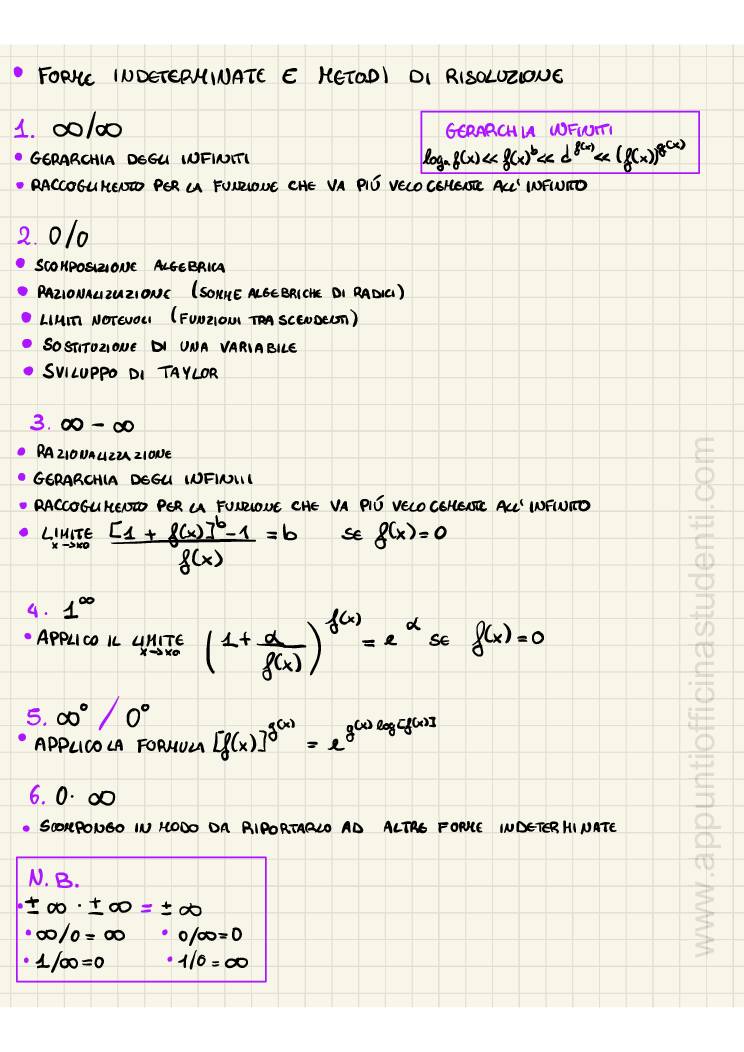 • FORME INDETERMINATE E METODI DI RISOLUZIONE
1. ∞/∞
GERARCHIA INFINITI
logₐ f(x) << f(x)^b << d^f(x) << (f(x))^g(x)
• GERARCHIA DEGLI INFINITI
• RACCOGLIMENTO PER LA FUNZIONE CHE VA PIÚ VELOCEMENTE ALL'INFINITO
2. 0/0
• SCOMPOSIZIONE ALGEBRICA
• RAZIONALIZZAZIONE (SOMME ALGEBRICHE DI RADICI)
• LIMITI NOTEVOLI (FUNZIONI TRASCENDENTI)
• SOSTITUZIONE DI UNA VARIABILE
• SVILUPPO DI TAYLOR
3. ∞ - ∞
• RAZIONALIZZAZIONE
• GERARCHIA DEGLI INFINITI
• RACCOGLIMENTO PER LA FUNZIONE CHE VA PIÚ VELOCEMENTE ALL'INFINITO
• LIMITE x→x0 ([1 + f(x)]^b - 1) / f(x) = b SE f(x) = 0
4. 1^∞
• APPLICO IL LIMITE x→x0 (1 + α/f(x))^f(x) = e^α SE f(x) = 0
5. ∞⁰ / 0⁰
• APPLICO LA FORMULA [f(x)]^g(x) = e^g(x) log[f(x)]
6. 0 · ∞
• SCOMPONGO IN MODO DA RIPORTARLO AD ALTRE FORME INDETERMINATE
N.B.
• ± ∞ · ± ∞ = ± ∞
• ∞/0 = ∞ • 0/∞ = 0
• 1/∞ = 0 • 1/0 = ∞
www.appuntiofficinastudenti.com